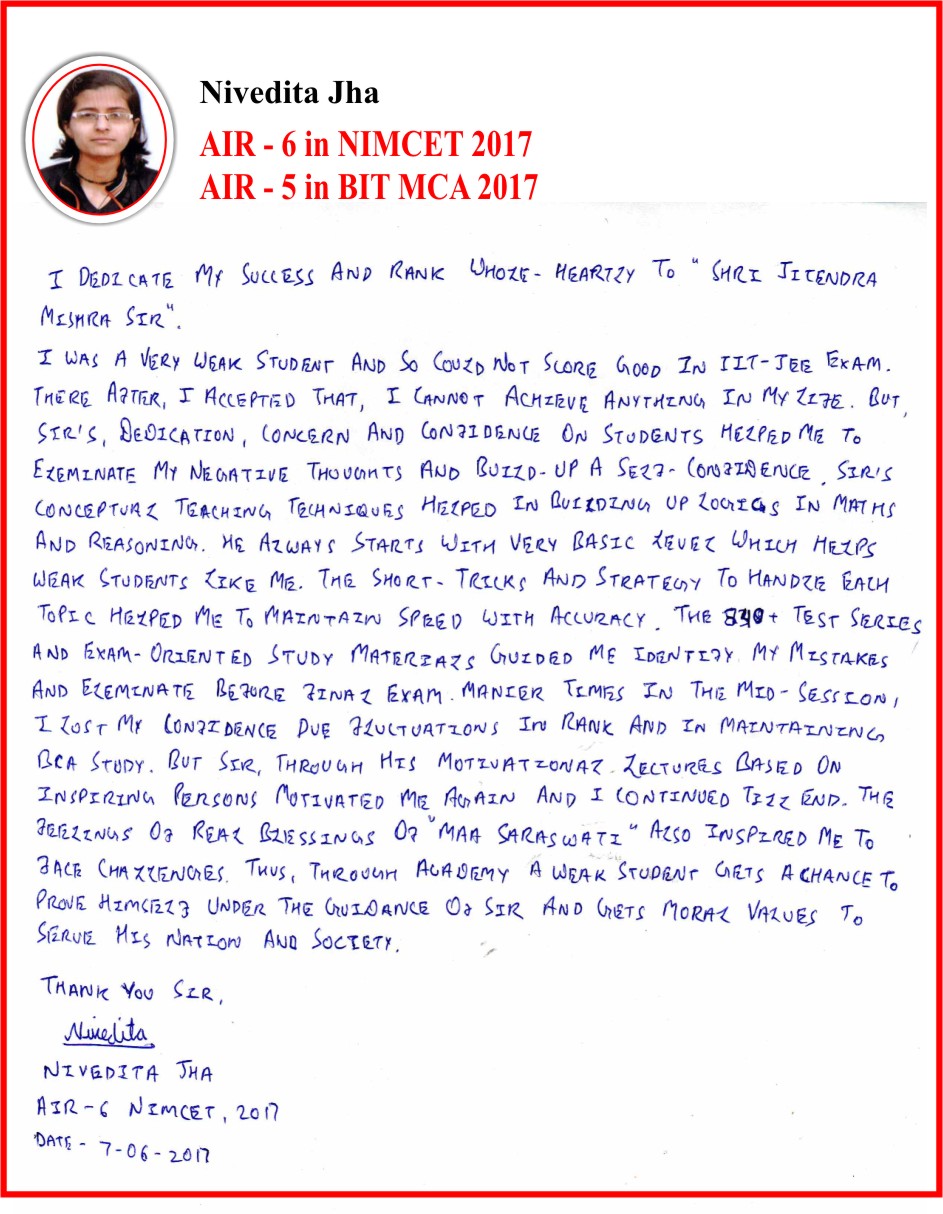 Nivedita Jha
AIR - 6 in NIMCET 2017
AIR - 5 in BIT MCA 2017
I DEDICATE MY SUCCESS AND RANK WHOLE-HEARTLY TO "SHRI JITENDRA
MISHRA SIR".
I WAS A VERY WEAK STUDENT AND SO COULD NOT SCORE GOOD IN IIT-JEE EXAM.
THERE AFTER, I ACCEPTED THAT, I CANNOT ACHIEVE ANYTHING IN MY LIFE. BUT,
SIR'S, DEDICATION, CONCERN AND CONFIDENCE ON STUDENTS HELPED ME TO
ELEMINATE MY NEGATIVE THOUGHTS AND BUILD-UP A SELF-CONFIDENCE. SIR'S
CONCEPTUAL TEACHING TECHNIQUES HELPED IN BUILDING UP LOGICS IN MATHS
AND REASONING. HE ALWAYS STARTS WITH VERY BASIC LEVEL WHICH HELPS
WEAK STUDENTS LIKE ME. THE SHORT-TRICKS AND STRATEGY TO HANDLE EACH
TOPIC HELPED ME TO MAINTAIN SPEED WITH ACCURACY. THE TEST SERIES
AND EXAM-ORIENTED STUDY MATERIALS GUIDED ME IDENTIFY MY MISTAKES
AND ELEMINATE BEFORE FINAL EXAM. MANIER TIMES IN THE MID-SESSION,
I LOST MY CONFIDENCE DUE FLUCTUATIONS IN RANK AND IN MAINTAINING
BCA STUDY. BUT SIR, THROUGH HIS MOTIVATIONAL LECTURES BASED ON
INSPIRING PERSONS MOTIVATED ME AGAIN AND I CONTINUED TILL END. THE
FEELINGS OF REAL BLESSINGS OF "MAA SARASWATI" ALSO INSPIRED ME TO
FACE CHALLENGES. THUS, THROUGH ACADEMY A WEAK STUDENT GETS A CHANCE TO
PROVE HIMSELF UNDER THE GUIDANCE OF SIR AND GETS MORAL VALUES TO
SERVE HIS NATION AND SOCIETY.
THANK YOU SIR,
Nivedita
NIVEDITA JHA
AIR-6 NIMCET, 2017
DATE - 7-06-2017